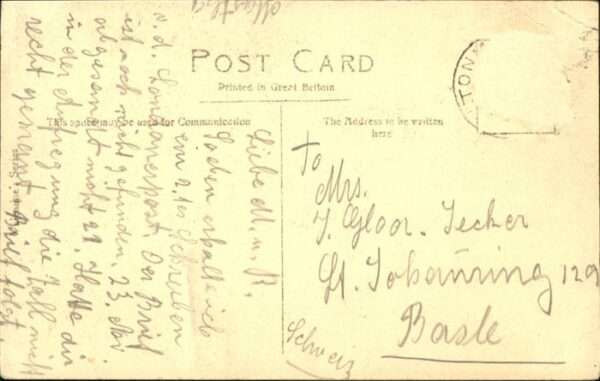 POST CARD
Printed in Great Britain
This space may be used for Communication
The Address to be written
here
TOW
Liebe M. u. R.
Soeben erhalte ich
ein Schreiben
v. d. Londonerpost. Der Brief
ist noch nicht gefunden. 23. Nov.
abgesandt nicht 21. Hatte dir
in der Aufregung die Zahl nicht
recht genannt. Brief folgt.
To
Mrs.
J. Gloor-Jecker
St. Johannring 129
Basle
Schweiz